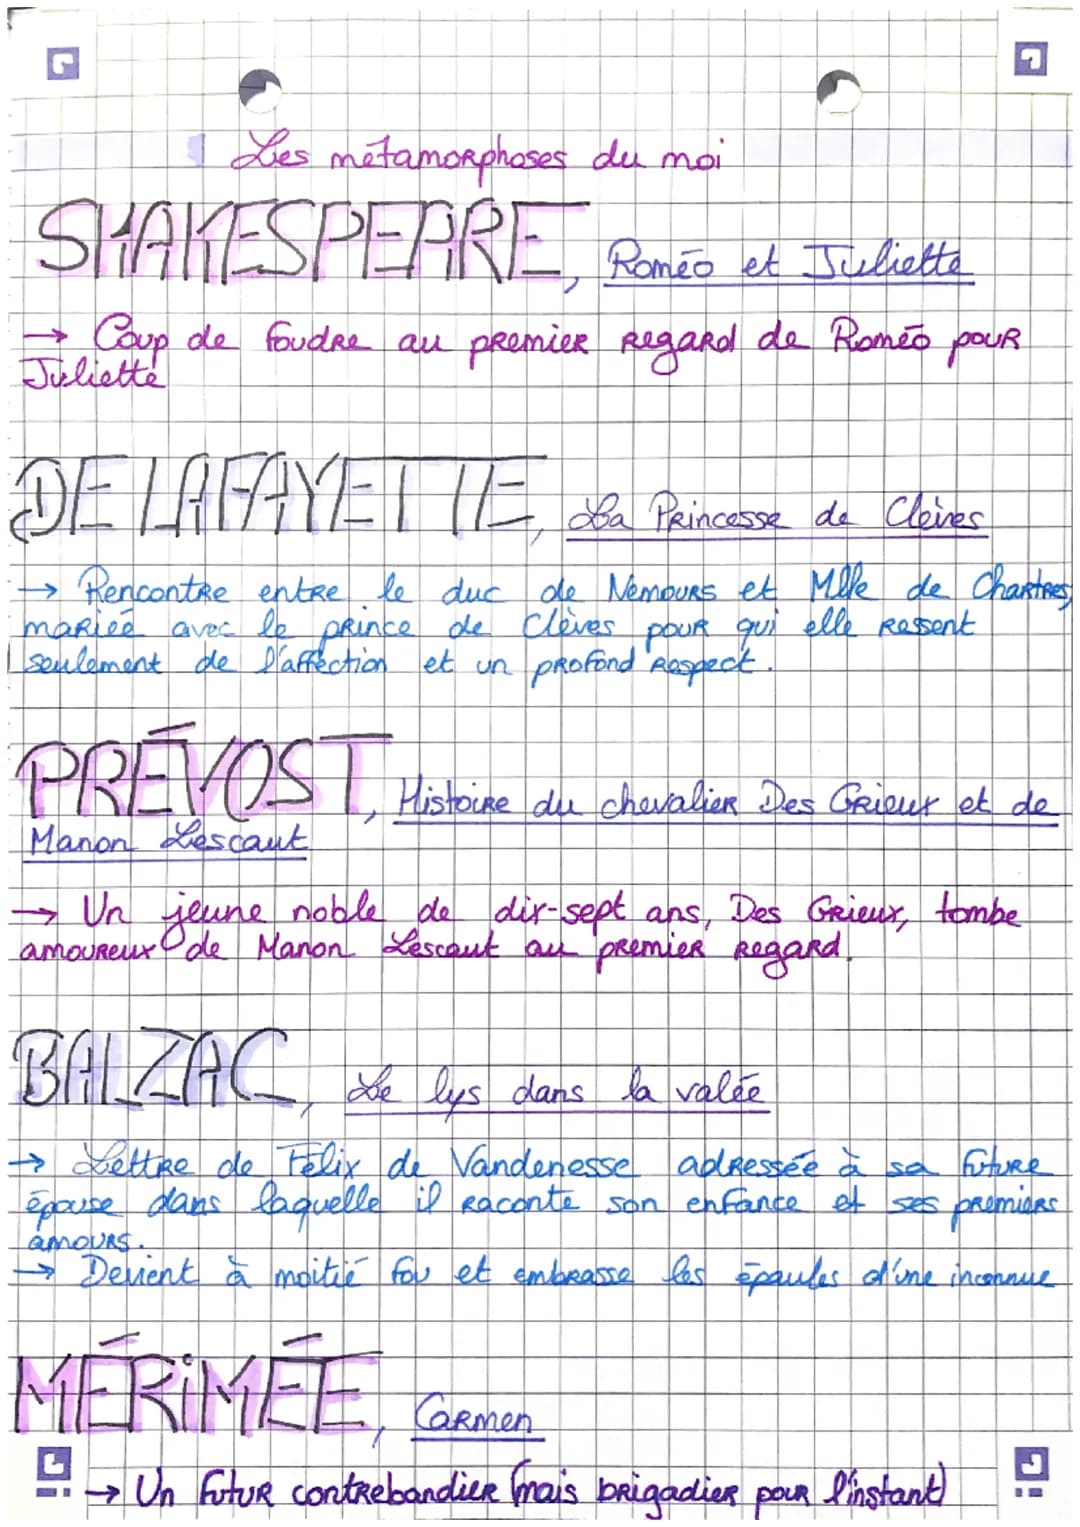 Les métamorphoses du moi
SHAKESPEARE, Roméo et Juliette
→ Coup de foudre au premier regard de Roméo pour
Juliette
DE LAFAYETTE, La Princesse de Clèves
→ Rencontre entre le duc de Nemours et Mlle de Chartres,
mariée avec le prince de Clèves pour qui elle ressent
seulement de l'affection et un profond respect.
PRÉVOST, Histoire du chevalier Des Grieux et de
Manon Lescaut
→ Un jeune noble de dix-sept ans, Des Grieux, tombe
amoureux de Manon Lescaut au premier regard.
BALZAC, Le lys dans la valée
→ Lettre de Félix de Vandenesse adressée à sa future
épouse dans laquelle il raconte son enfance et ses premiers
amours.
→ Devient à moitié fou et embrasse les épaules d'une inconnue
MÉRIMÉE, Carmen
→ Un futur contrebandier (mais brigadier pour l'instant)